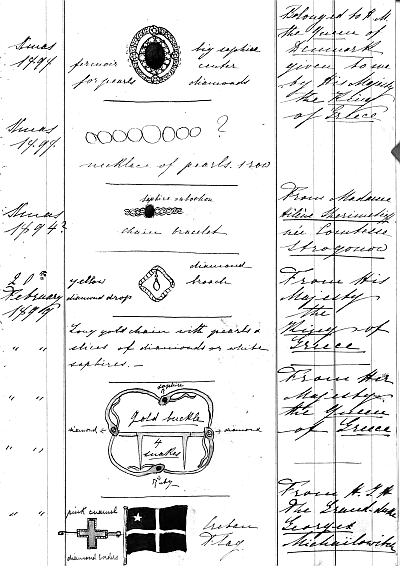 Xmas
1894
fermoir
for pearls
big saphire
center
diamonds
Belonged to H M
the Queen of
Denmark
given to me
by His Majesty
the King
of Greece
Xmas
1894
?
necklace of pearls. 1 row
Xmas
1894?
saphire cabochon
chain bracelet
From Madame
Hélène Sheremetieff
née Comtesse
Strogonow
20th
February
1899
yellow
diamond drops
diamond
brooch
From His
Majesty
the
King of
Greece
" "
Long gold chain with pearls &
slices of diamonds or white
saphires. —
" "
saphire
Gold buckle
diamond
diamond
4
snakes
Ruby
From Her
Majesty
the Queen
of Greece
" "
" "
pink enamel
diamond borders
Cretan
Flag
From H. I. H.
The Grand duke
Georges
Michailowitch